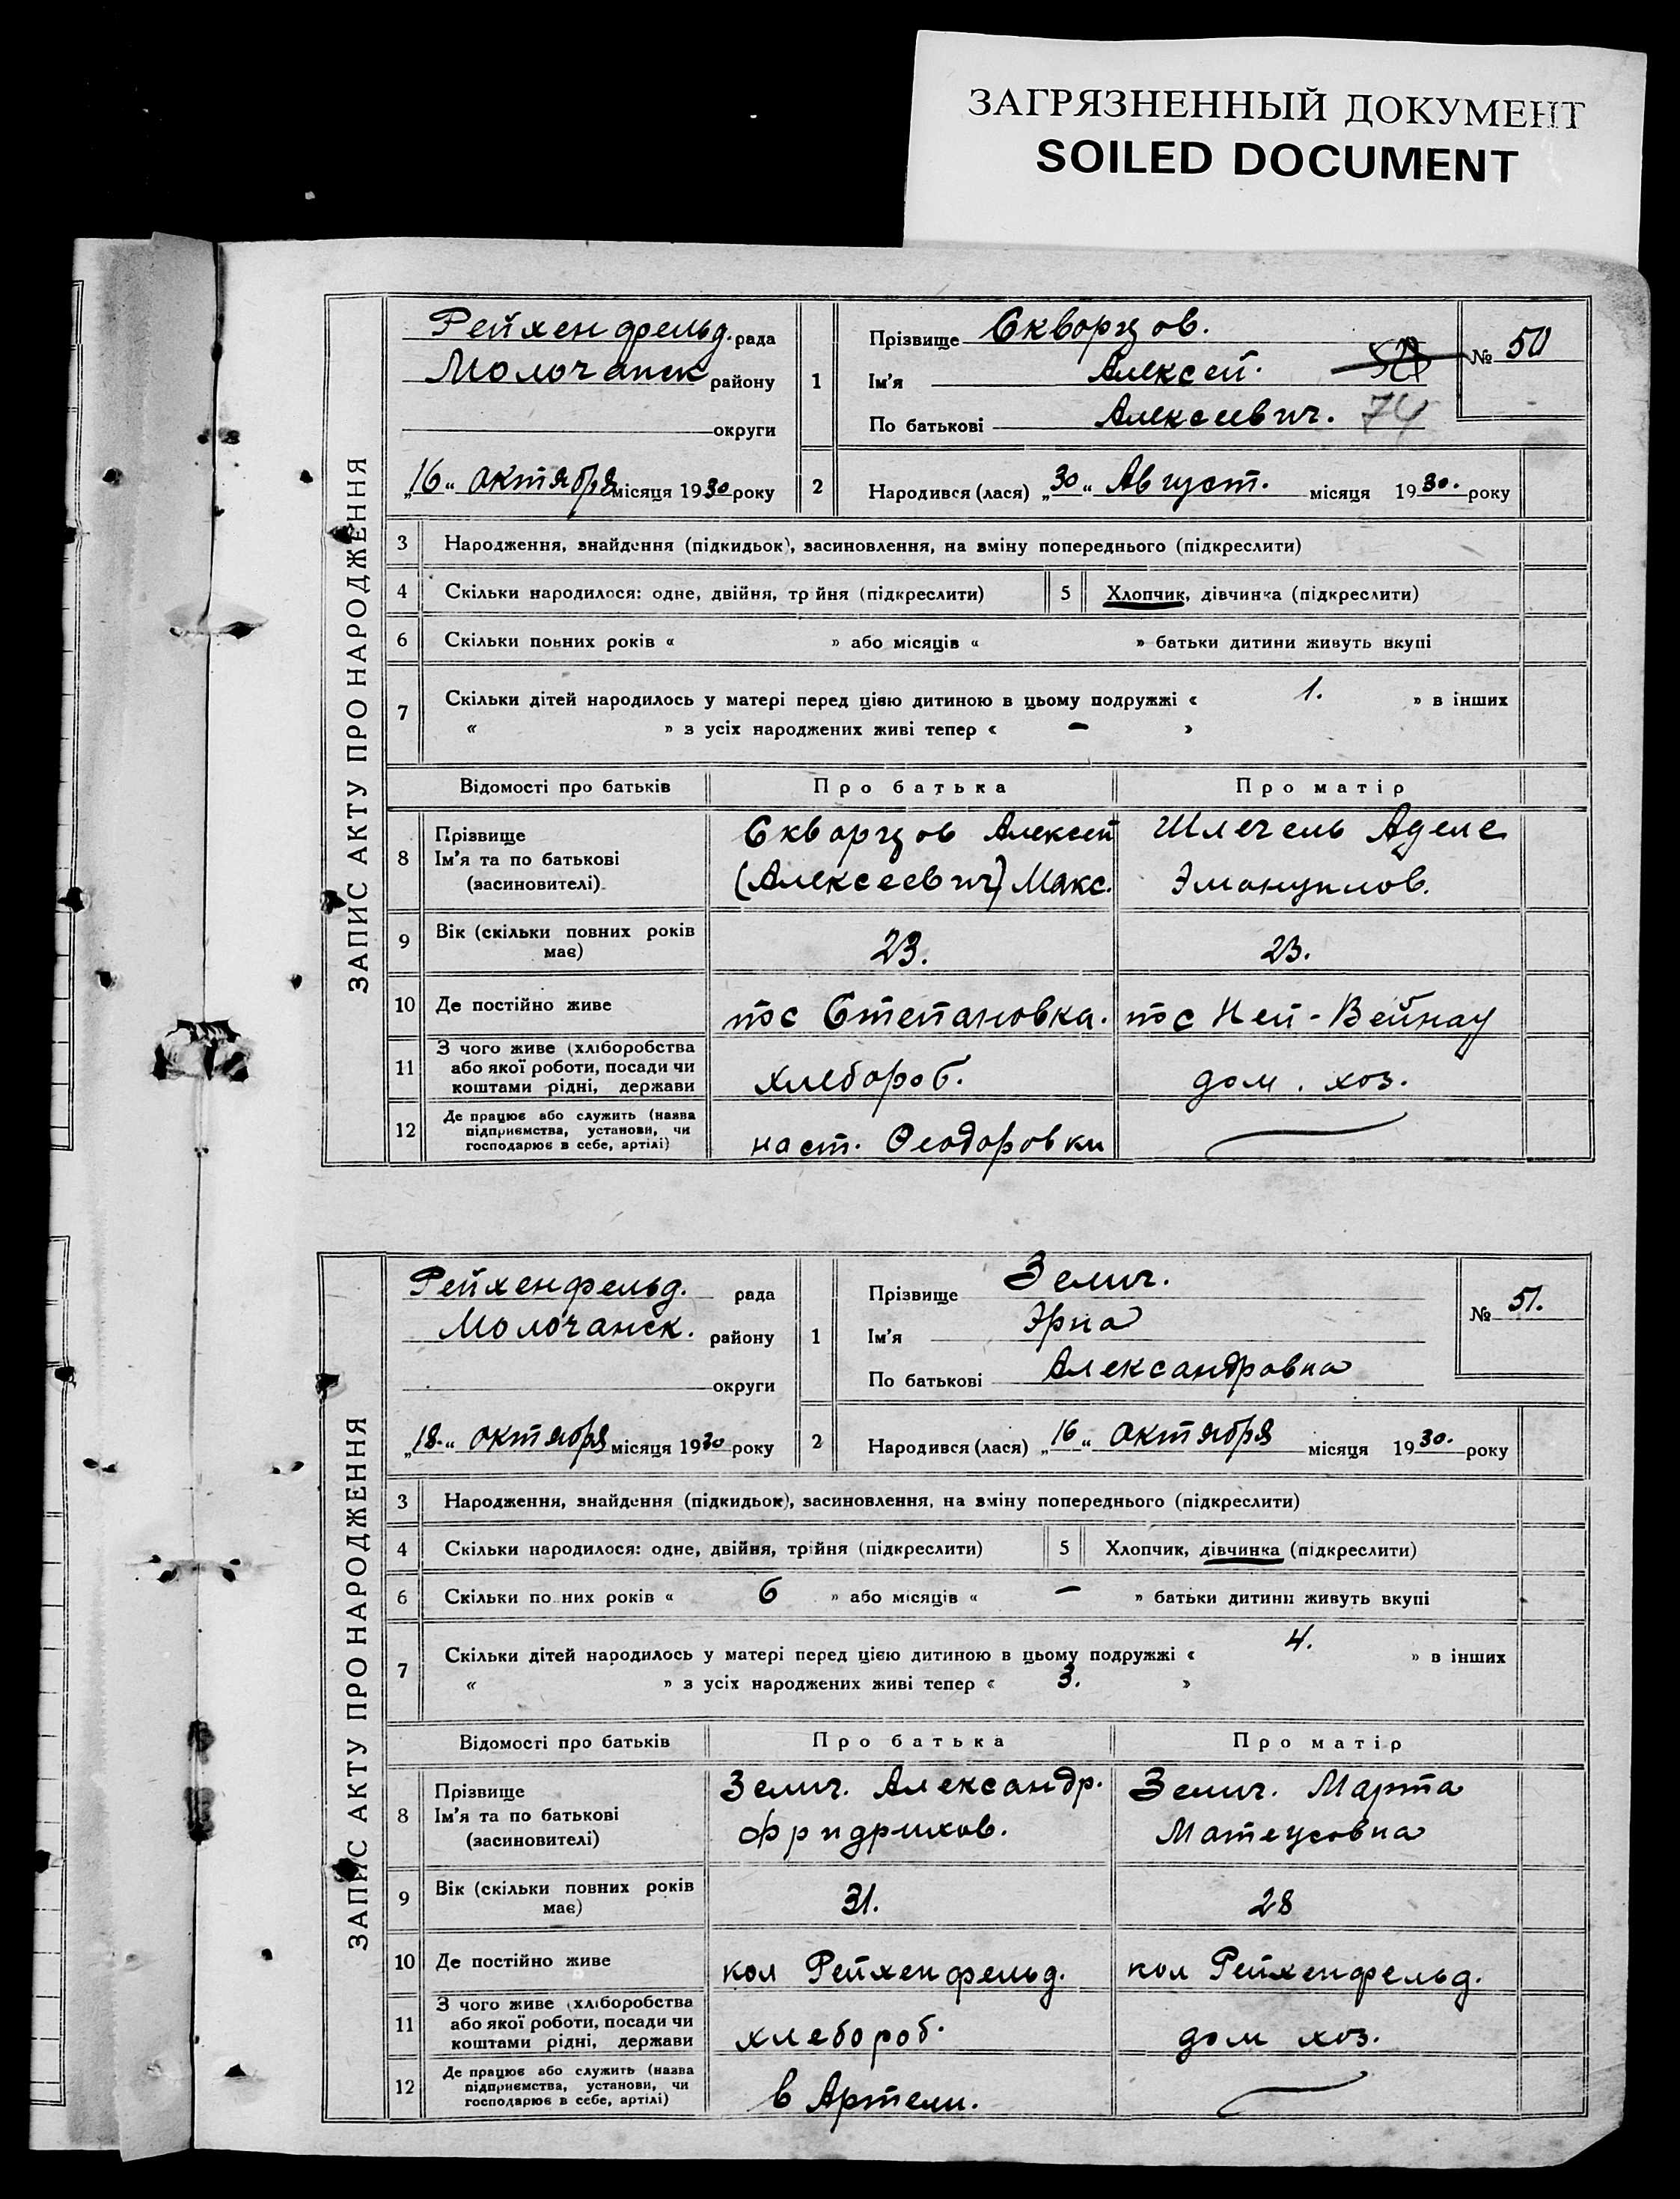 ЗАГРЯЗНЕННЫЙ ДОКУМЕНТ
SOILED DOCUMENT
ЗАПИС АКТУ ПРО НАРОДЖЕННЯ
Рейхенфельд. рада
Молочанск району
округи
„16“ октября місяця 1930 року
1
Прізвище Скворцов.
Ім'я Алексей.
По батькові Алексеевич. 74
№ 50
2 Народився (лася) „30“ Август. місяця 1930. року
3 Народження, знайдення (підкидьок), засиновлення, на зміну попереднього (підкреслити)
4 Скільки народилося: одне, двійня, трійня (підкреслити) 5 Хлопчик, дівчинка (підкреслити)
6 Скільки повних років « » або місяців « » батьки дитини живуть вкупі
7 Скільки дітей народилось у матері перед цією дитиною в цьому подружжі « 1. » в інших
« » з усіх народжених живі тепер « – »
Відомості про батьків Про батька Про матір
8 Прізвище
Ім'я та по батькові
(засиновителі)
Скворцов Алексей
(Алексеевич) Макс.
Шлечель Аделе
Эмануилов.
9 Вік (скільки повних років
має)
23. 23.
10 Де постійно живе пос Степановка. пос Ней-Вейнау
11 З чого живе (хліборобства
або якої роботи, посади чи
коштами рідні, держави
хлебороб. дом. хоз.
12 Де працює або служить (назва
підприємства, установи, чи
господарює в себе, артілі)
наст. Феодоровки
ЗАПИС АКТУ ПРО НАРОДЖЕННЯ
Рейхенфельд. рада
Молочанск. району
округи
„18.“ октября місяця 1930 року
1
Прізвище Зелич.
Ім'я Эрна
По батькові Александровна
№ 51.
2 Народився (лася) „16“ октября місяця 1930. року
3 Народження, знайдення (підкидьок), засиновлення, на зміну попереднього (підкреслити)
4 Скільки народилося: одне, двійня, трійня (підкреслити) 5 Хлопчик, дівчинка (підкреслити)
6 Скільки по них років « 6 » або місяців « – » батьки дитини живуть вкупі
7 Скільки дітей народилось у матері перед цією дитиною в цьому подружжі « 4. » в інших
« » з усіх народжених живі тепер « 3. »
Відомості про батьків Про батька Про матір
8 Прізвище
Ім'я та по батькові
(засиновителі)
Зелич. Александр.
Фридрихов.
Зелич. Марта
Матеусовна
9 Вік (скільки повних років
має)
31. 28
10 Де постійно живе кол Рейхенфельд. кол Рейхенфельд.
11 З чого живе (хліборобства
або якої роботи, посади чи
коштами рідні, держави
хлебороб. дом хоз.
12 Де працює або служить (назва
підприємства, установи, чи
господарює в себе, артілі)
в Артели.